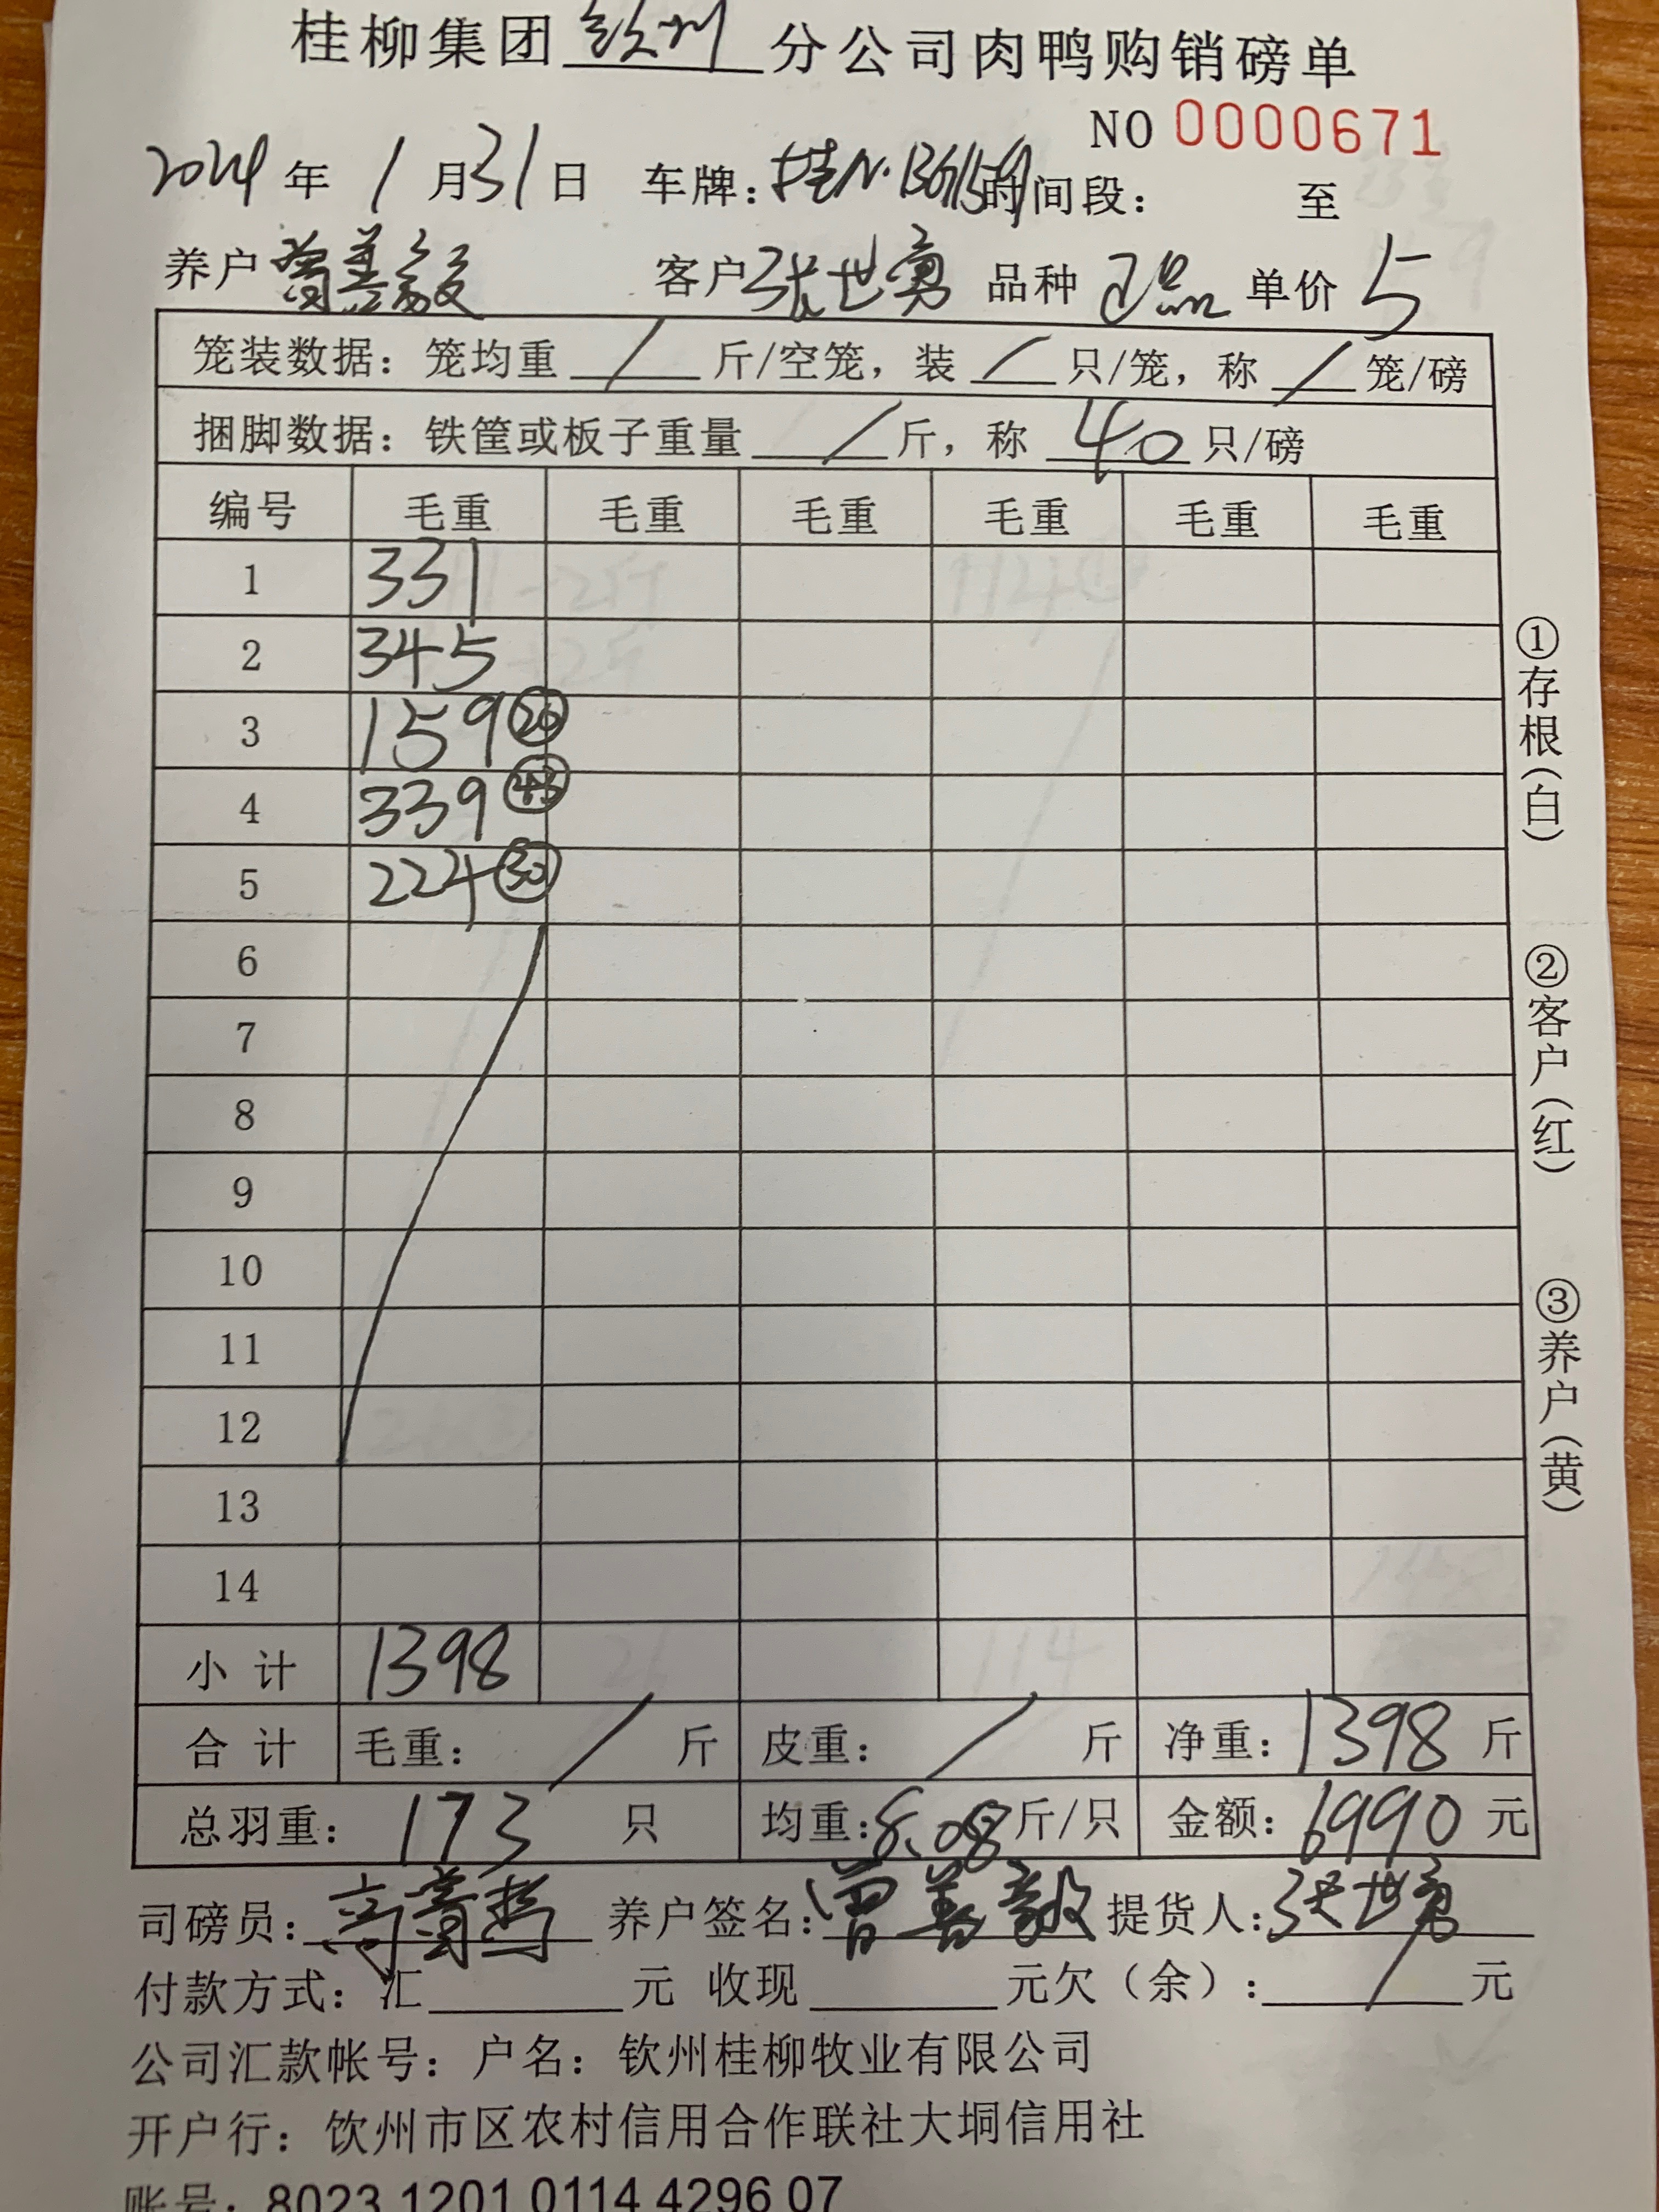 桂柳集团钦州分公司肉鸭购销磅单
NO 0000671
2024年1月31日 车牌：桂N·B6159 时间段： 至
养户曾善毅 客户张世勇 品种 单价5
笼装数据：笼均重/斤/空笼，装/只/笼，称/笼/磅
捆脚数据：铁筐或板子重量/斤，称40只/磅
编号 毛重 毛重 毛重 毛重 毛重 毛重
1 331
2 345
3 159 20
4 339 43
5 224 30
6
7
8
9
10
11
12
13
14
小计 1398
合计 毛重：/斤 皮重：/斤 净重：1398斤
总羽重：173只 均重：8.08斤/只 金额：6990元
司磅员： 养户签名：曾善毅 提货人：张世勇
付款方式：汇 元 收现 元欠（余）：/元
公司汇款帐号：户名：钦州桂柳牧业有限公司
开户行：饮州市区农村信用合作联社大垌信用社
账号：8023 1201 0114 4296 07
①存根（白）
②客户（红）
③养户（黄）